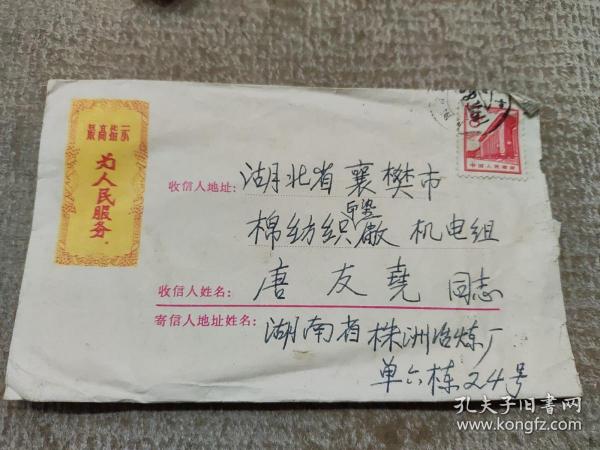 最高指示
为人民服务.
收信人地址：湖北省襄樊市
棉纺织厰 机电组
收信人姓名：唐友尧 同志
寄信人地址姓名：湖南省株洲冶炼厂
单六栋24号
中国人民邮政
孔夫子旧书网
www.kongfz.com